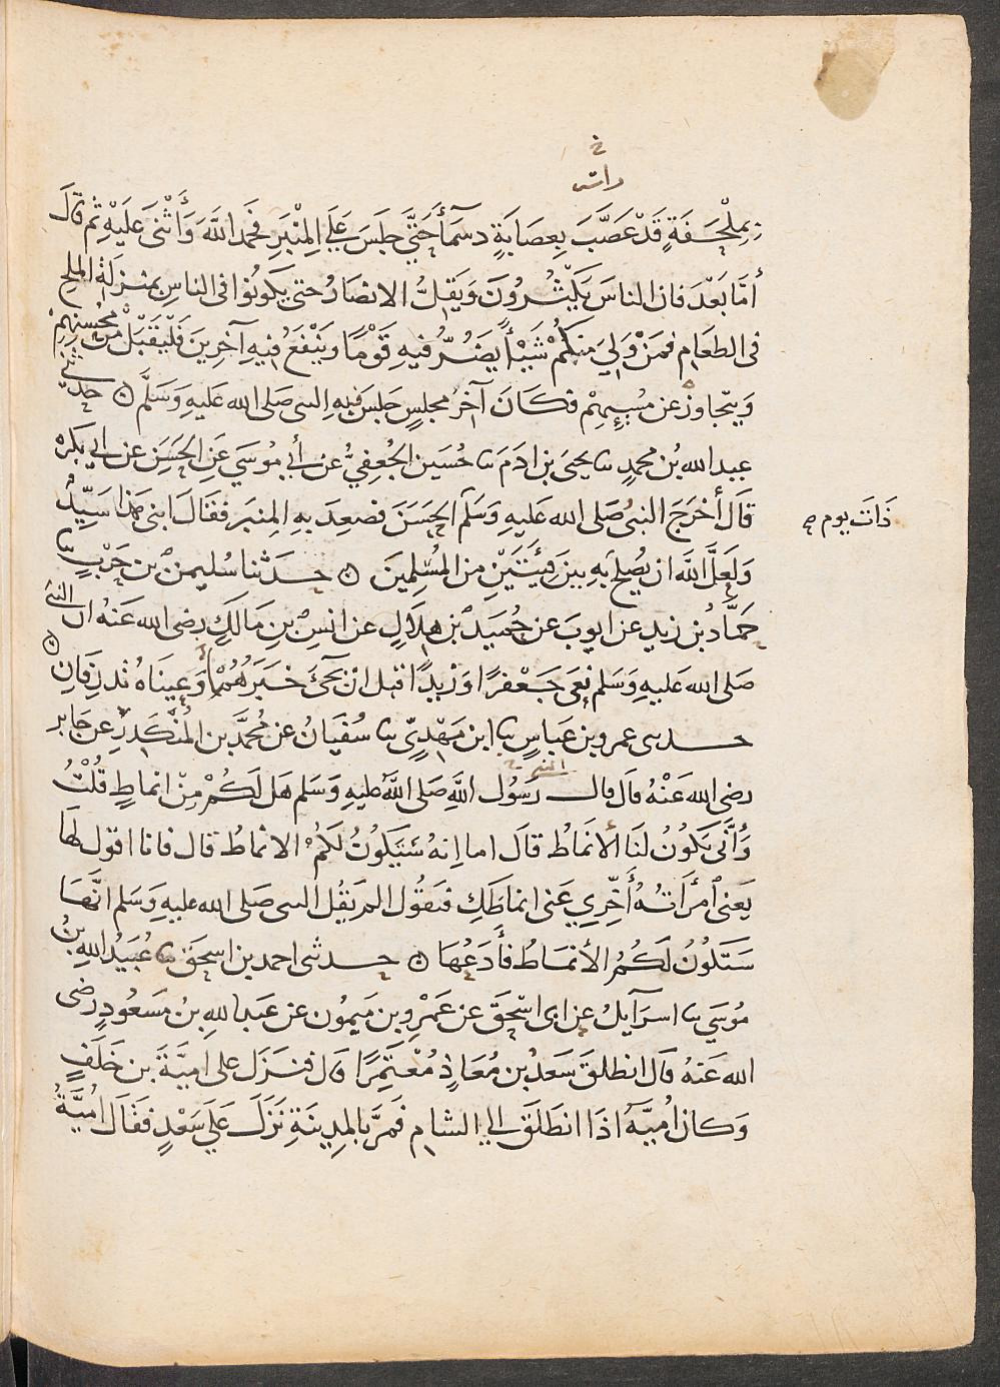 خ
رات
بِمِلْحَفَةٍ قَدْ عَصَّبَ بِعِصَابَةٍ دسمَآءَ حَتَّى جَلَسَ عَلَى المِنْبَرِ فحَمِدَ اللَّهَ وَأَثْنَى عَلَيْهِ ثم قالَ
أمَّا بَعْدَ فان الناسَ يَكْثُرُونَ وَيَقِلُّ الانصَارُ حتى يكونُوا فى الناسِ بمنزلةِ الملحِ
فى الطعَامِ فمَنْ وَلِيَ مِنكُمْ شَيْأً يَضُرُّ فيهِ قَوْمًا ويَنْفَعُ فيهِ آخرِينَ فَلْيَقْبَلْ من مُحْسِنِهِمْ
وَيتجاوزْ عن مُسِيئِهِمْ فكَانَ آخرُ مجلسٍ جَلسَ فيهِ النبى صَلى الله عَليهِ وَسَلَّم ۞ حدثنى
عبد الله بْن محمدٍ ثنا يحيَى بن ادَمَ ثنا حُسَين الجُعفِيُّ عن أَبِي مُوسَي عَنِ الحَسَنِ عن ابي بَكرهَ
قَالَ أخرَجَ النبىُ صَلى الله عَليهِ وَسَلّم الحَسَنَ فصَعِدَ بهِ المِنبَر فقالَ ابنى هَذا سَيِّدٌ
ذَاتَ يوم صح
وَلعَلَّ اللَّهَ ان يُصْلِحَ بهِ بينَ فِئَتَيْنِ من المُسْلِمينَ ۞ حدَثنا سُليمنُ بن حَرْبٍ ثنا
حَمَّادُ بن زيدٍ عن ايوبَ عن حُمَيدِ بن هِلَالٍ عن انسِ بنِ مَالكٍ رضى الله عَنهُ ان النبىَّ
صَلى الله عَليهِ وَسَلم نَعَى جَعْفرًا وَزيدًا قبلَ انْ يَجِئَ خَبَرُهُمْ وَعينَاهُ تذرِفَانِ ۞
حدثنى عمرو بن عَباسٍ ثنا ابن مَهْدِيٍّ ثنا سُفيَانُ عن مُحَمَّد بن المُنْكَدِرِ عن جَابر
رضى الله عَنْهُ قَالَ قال رَسُول اللَّهِ صَلى اللَّهُ عَليهِ وَسَلم هَل لَكُمْ مِنْ انماطٍ قُلْتُ
النبى خ
وَأَنَّى يَكُونُ لنَا الأنمَاطُ قالَ اما اِنهُ سَتَكونُ لكُمُ الانماطُ قال فانا اقول لهَا
يَعني اٌمرَأتهُ أَخِّرِي عَنى انماطَكِ فتقُول الم يَقُلِ النبى صَلى الله عليهِ وَسَلم انَّهَا
سَتَكُونُ لكُمُ الأنمَاطُ فأَدَعُهَا ۞ حدثنى احمد بن اسحَقَ ثنا عُبَيدُ اللهِ بْنُ
مُوسَي ثنا اسرَآيلُ عن ابى اسْحَقَ عن عَمْرِو بن مَيمُون عن عَبد اللهِ بن مَسعُودٍ رضى
الله عَنهُ قال انطلقَ سَعدُ بْن مُعَاذٍ مُعْتَمِرًا قال فنزَلَ على اميَّةَ بن خَلَفٍ
وَكان اُميَّةُ اذَا انطَلَقَ الي الشامِ فَمرَّ بالمدِينَةِ نَزَلَ عَلَى سَعْدٍ فقَالَ اُمَيَّةُ